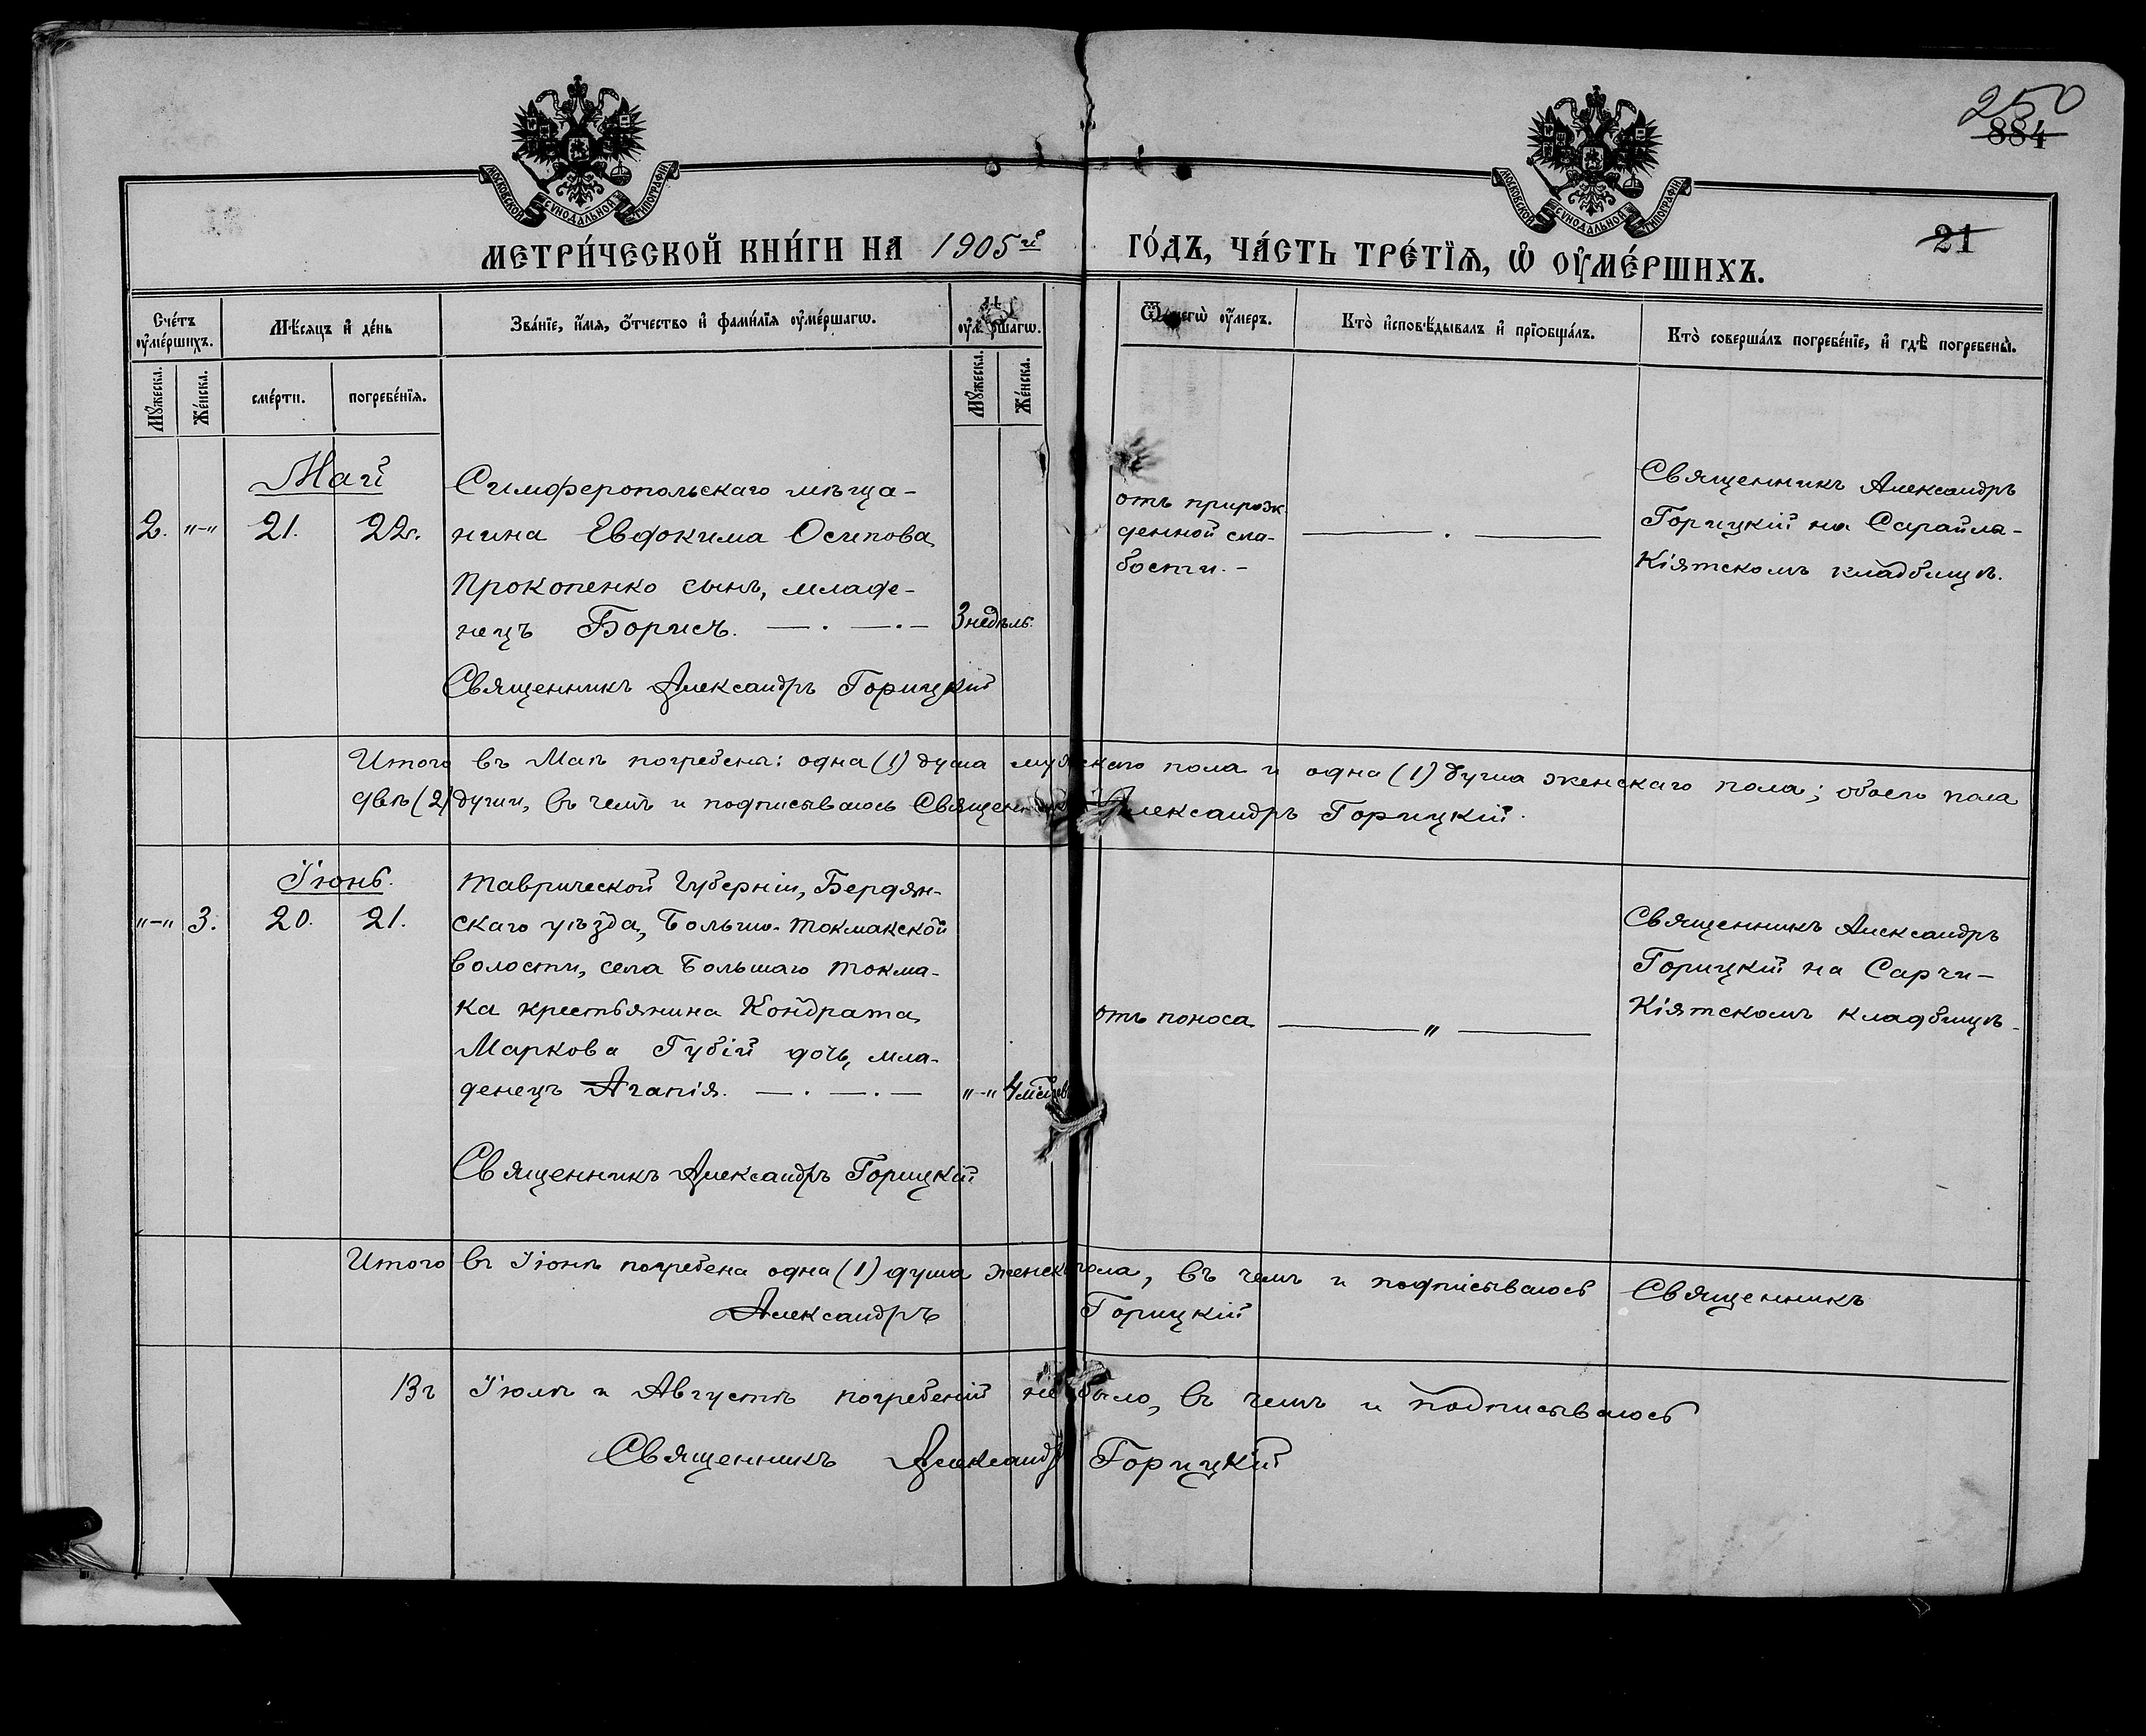 250
884
МОСКОВСКОЙ СѴНОДАЛЬНОЙ ТИПОГРАФІИ
МОСКОВСКОЙ СѴНОДАЛЬНОЙ ТИПОГРАФІИ
21
МЕТРИ́ЧЕСКОЙ КНИ́ГИ НА 1905й ГО́ДЪ, ЧА́СТЬ ТРЕ́ТЇѦ, Ѡ ОУ҆МЕ́РШИХЪ.
Сче́тъ оу҆ме́ршихъ.
Мѣ́сяцъ и҆ де́нь
Зва́нїе, и҆́мѧ, ѻ҆́тчество и҆ фами́лїѧ оу҆ме́ршагѡ.
оу҆ме́ршагѡ.
Ѿ чегѡ̀ оу҆́меръ.
Кто̀ и҆сповѣ́дывалъ и҆ прїѡбща́лъ.
Кто̀ соверша́лъ погребе́нїе, и҆ гдѣ̀ погребены̀.
Мꙋ́жескa.
Же́нска.
сме́рти.
погребе́нїѧ.
Мꙋ́жеска.
Же́нска.
Май
2. "-" 21. 22.
Симферопольскаго мѣща-
нина Евдокима Осипова
Прокопенко сынъ, младе-
нецъ Борисъ. — . — . — 3 недѣль.
Священникъ Александръ Горицкій
отъ прирож-
денной сла-
бости. -
Священникъ Александръ
Горицкій на Сарайла-
Кіятскомъ кладбищѣ.
Итого въ Маѣ погребены: одна (1) душа мужскаго пола и одна (1) душа женскаго пола; обоего пола
двѣ (2) души, въ чемъ и подписываюсь Священникъ Александръ Горицкій.
Іюнь.
"-" 3. 20. 21.
Таврической Губерніи, Бердян-
скаго уѣзда, Больше-Токмакской
волости, села Большаго Токма-
ка крестьянина Кондрата
Маркова Губій дочь, мла-
денецъ Агапія. — . — . — "-" 4 мѣсяцев
Священникъ Александръ Горицкій
отъ поноса — " —
Священникъ Александръ
Горицкій на Сарчи-
Кіятскомъ кладбищѣ.
Итого въ Іюнѣ погребена одна (1) душа женск. пола, въ чемъ и подписываюсь Священникъ
Александръ Горицкій
Въ Іюлѣ и Августѣ погребеній не было, въ чемъ и подписываюсь
Священникъ Александръ Горицкій